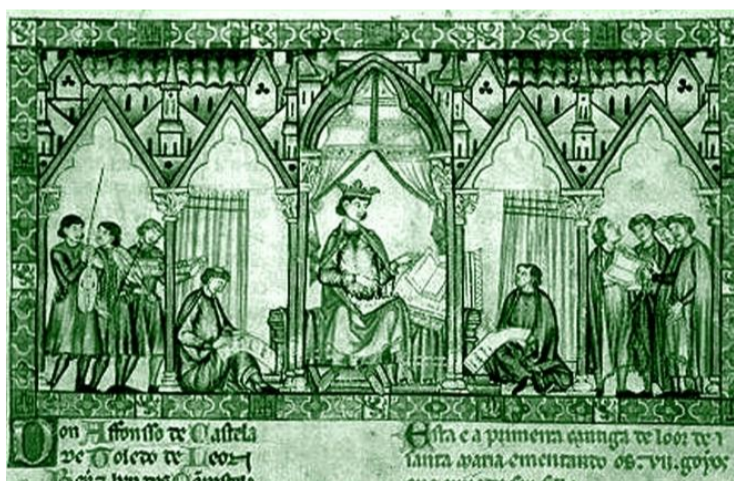 Don Affonsso de Castela
de Toledo de Leon
Esta e a primeira cantiga de loor de
santa maria ementando os .vii. goyos